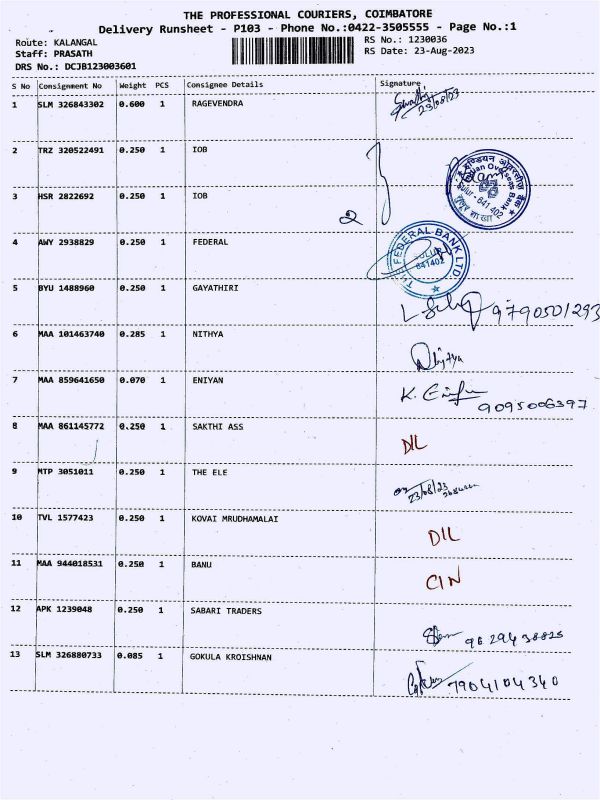 THE PROFESSIONAL COURIERS, COIMBATORE
Delivery Runsheet - P103 - Phone No.:0422-3505555 - Page No.:1
Route: KALANGAL
RS No.: 1230036
Staff: PRASATH
RS Date: 23-Aug-2023
DRS No.: DCJB123003601
S No Consignment No Weight PCS Consignee Details Signature
1 SLM 326843302 0.600 1 RAGEVENDRA 23/08/23
2 TRZ 320522491 0.250 1 IOB
3 HSR 2822692 0.250 1 IOB
2
इण्डियन ओवरसीज़ बैंक
Indian Overseas Bank
Sulur - 641 402
4 AWY 2938829 0.250 1 FEDERAL
THE FEDERAL BANK LTD.
SULUR
641402
5 BYU 1488960 0.250 1 GAYATHIRI 9790501293
6 MAA 101463740 0.285 1 NITHYA Nithya
7 MAA 859641650 0.070 1 ENIYAN K. 9095006397
8 MAA 861145772 0.250 1 SAKTHI ASS D/L
9 MTP 3051011 0.250 1 THE ELE 23/08/23
10 TVL 1577423 0.250 1 KOVAI MRUDHAMALAI D/L
11 MAA 944018531 0.250 1 BANU C/N
12 APK 1239048 0.250 1 SABARI TRADERS 9629438825
13 SLM 326880733 0.085 1 GOKULA KROISHNAN 7904104340